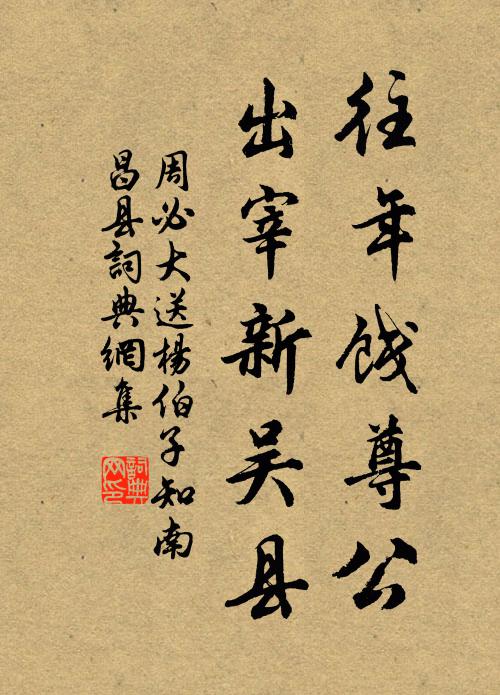 往年饯尊公
出宰新吴县
周必大送楊伯子知南
昌县詞典網集
詞典
网印